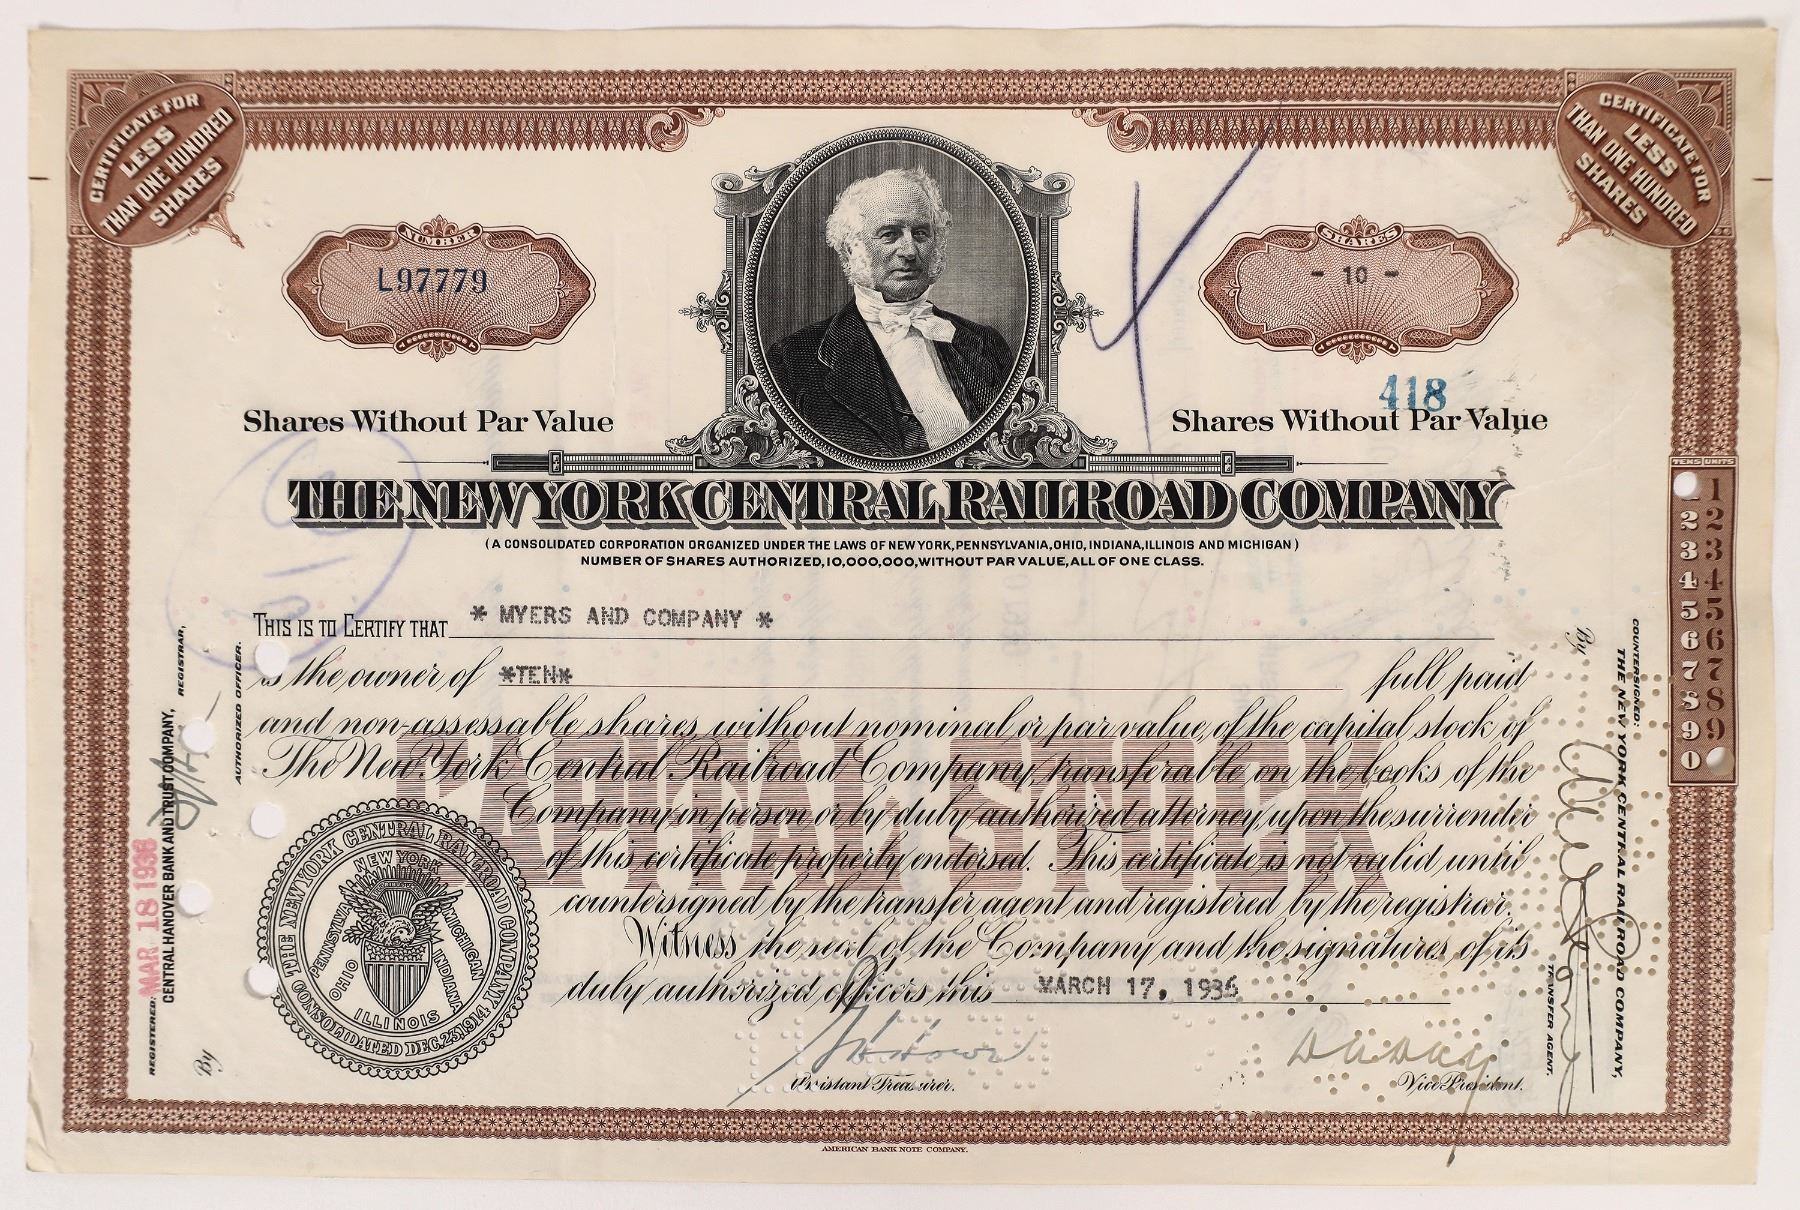 CERTIFICATE FOR
LESS
THAN ONE HUNDRED
SHARES
CERTIFICATE FOR
LESS
THAN ONE HUNDRED
SHARES
NUMBER
L97779
SHARES
- 10 -
418
Shares Without Par Value
Shares Without Par Value
THE NEW YORK CENTRAL RAILROAD COMPANY
(A CONSOLIDATED CORPORATION ORGANIZED UNDER THE LAWS OF NEW YORK, PENNSYLVANIA, OHIO, INDIANA, ILLINOIS AND MICHIGAN)
NUMBER OF SHARES AUTHORIZED, 10,000,000, WITHOUT PAR VALUE, ALL OF ONE CLASS.
TENS UNITS
1
2 2
3 3
4 4
5 5
6 6
7 7
8 8
9 9
0
THIS IS TO CERTIFY THAT * MYERS AND COMPANY *
is the owner of *TEN* full paid
and non-assessable shares, without nominal or par value, of the capital stock of
The New York Central Railroad Company, transferable on the books of the
Company in person or by duly authorized attorney, upon the surrender
of this certificate properly endorsed. This certificate is not valid until
countersigned by the transfer agent and registered by the registrar.
Witness the seal of the Company and the signatures of its
duly authorized officers this MARCH 17, 1936
CAPITAL STOCK
Assistant Treasurer.
Vice President.
THE NEW YORK CENTRAL RAILROAD COMPANY
CONSOLIDATED DEC. 23, 1914
NEW YORK
PENNSYLVANIA
MICHIGAN
OHIO
INDIANA
ILLINOIS
REGISTERED: MAR 18 1936
CENTRAL HANOVER BANK AND TRUST COMPANY,
REGISTRAR,
By
AUTHORIZED OFFICER.
COUNTERSIGNED:
THE NEW YORK CENTRAL RAILROAD COMPANY,
By
TRANSFER AGENT.
AMERICAN BANK NOTE COMPANY.